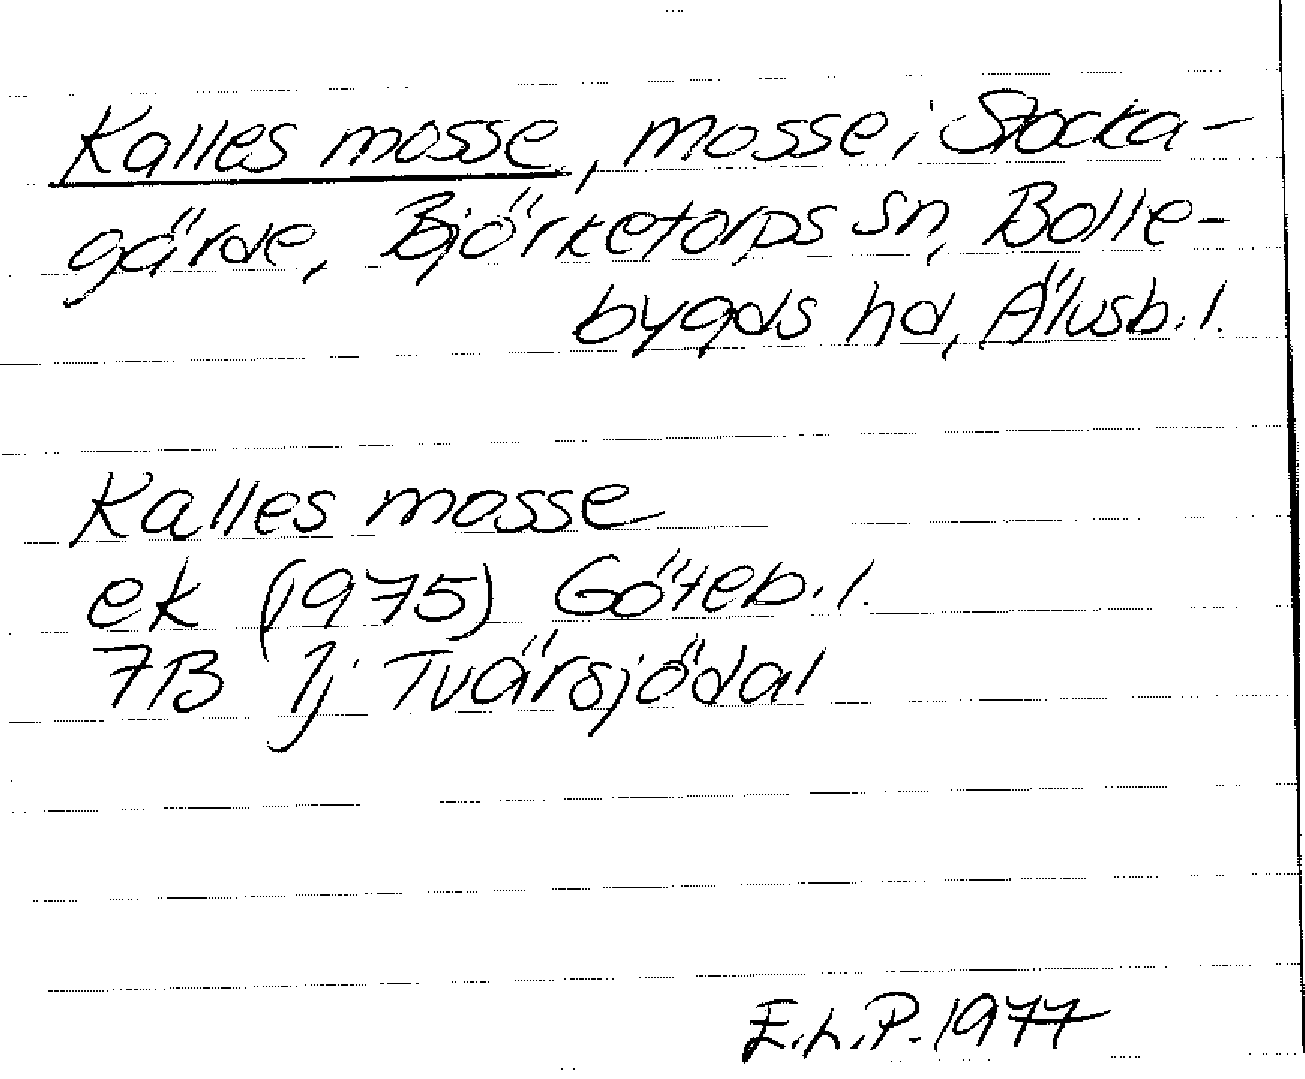 Kalles mosse, mosse i Stocka-
gärde, Björketorps sn, Bolle-
bygds hd, Älvsb. l.
Kalles mosse
ek (1975) Göteb. l.
7B 1j Tvärsjödal
E.L.P. 1977